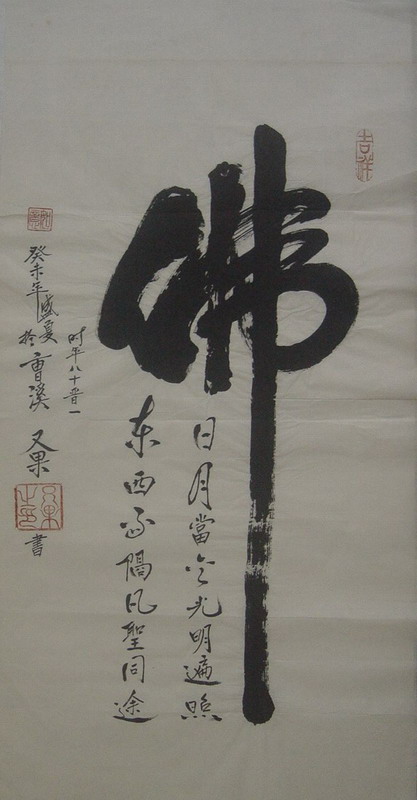 吉祥
佛
日月當空光明遍照
东西不隔凡聖同途
时年八十晋一
癸未年盛夏
於曹溪
又果
又果之印
書